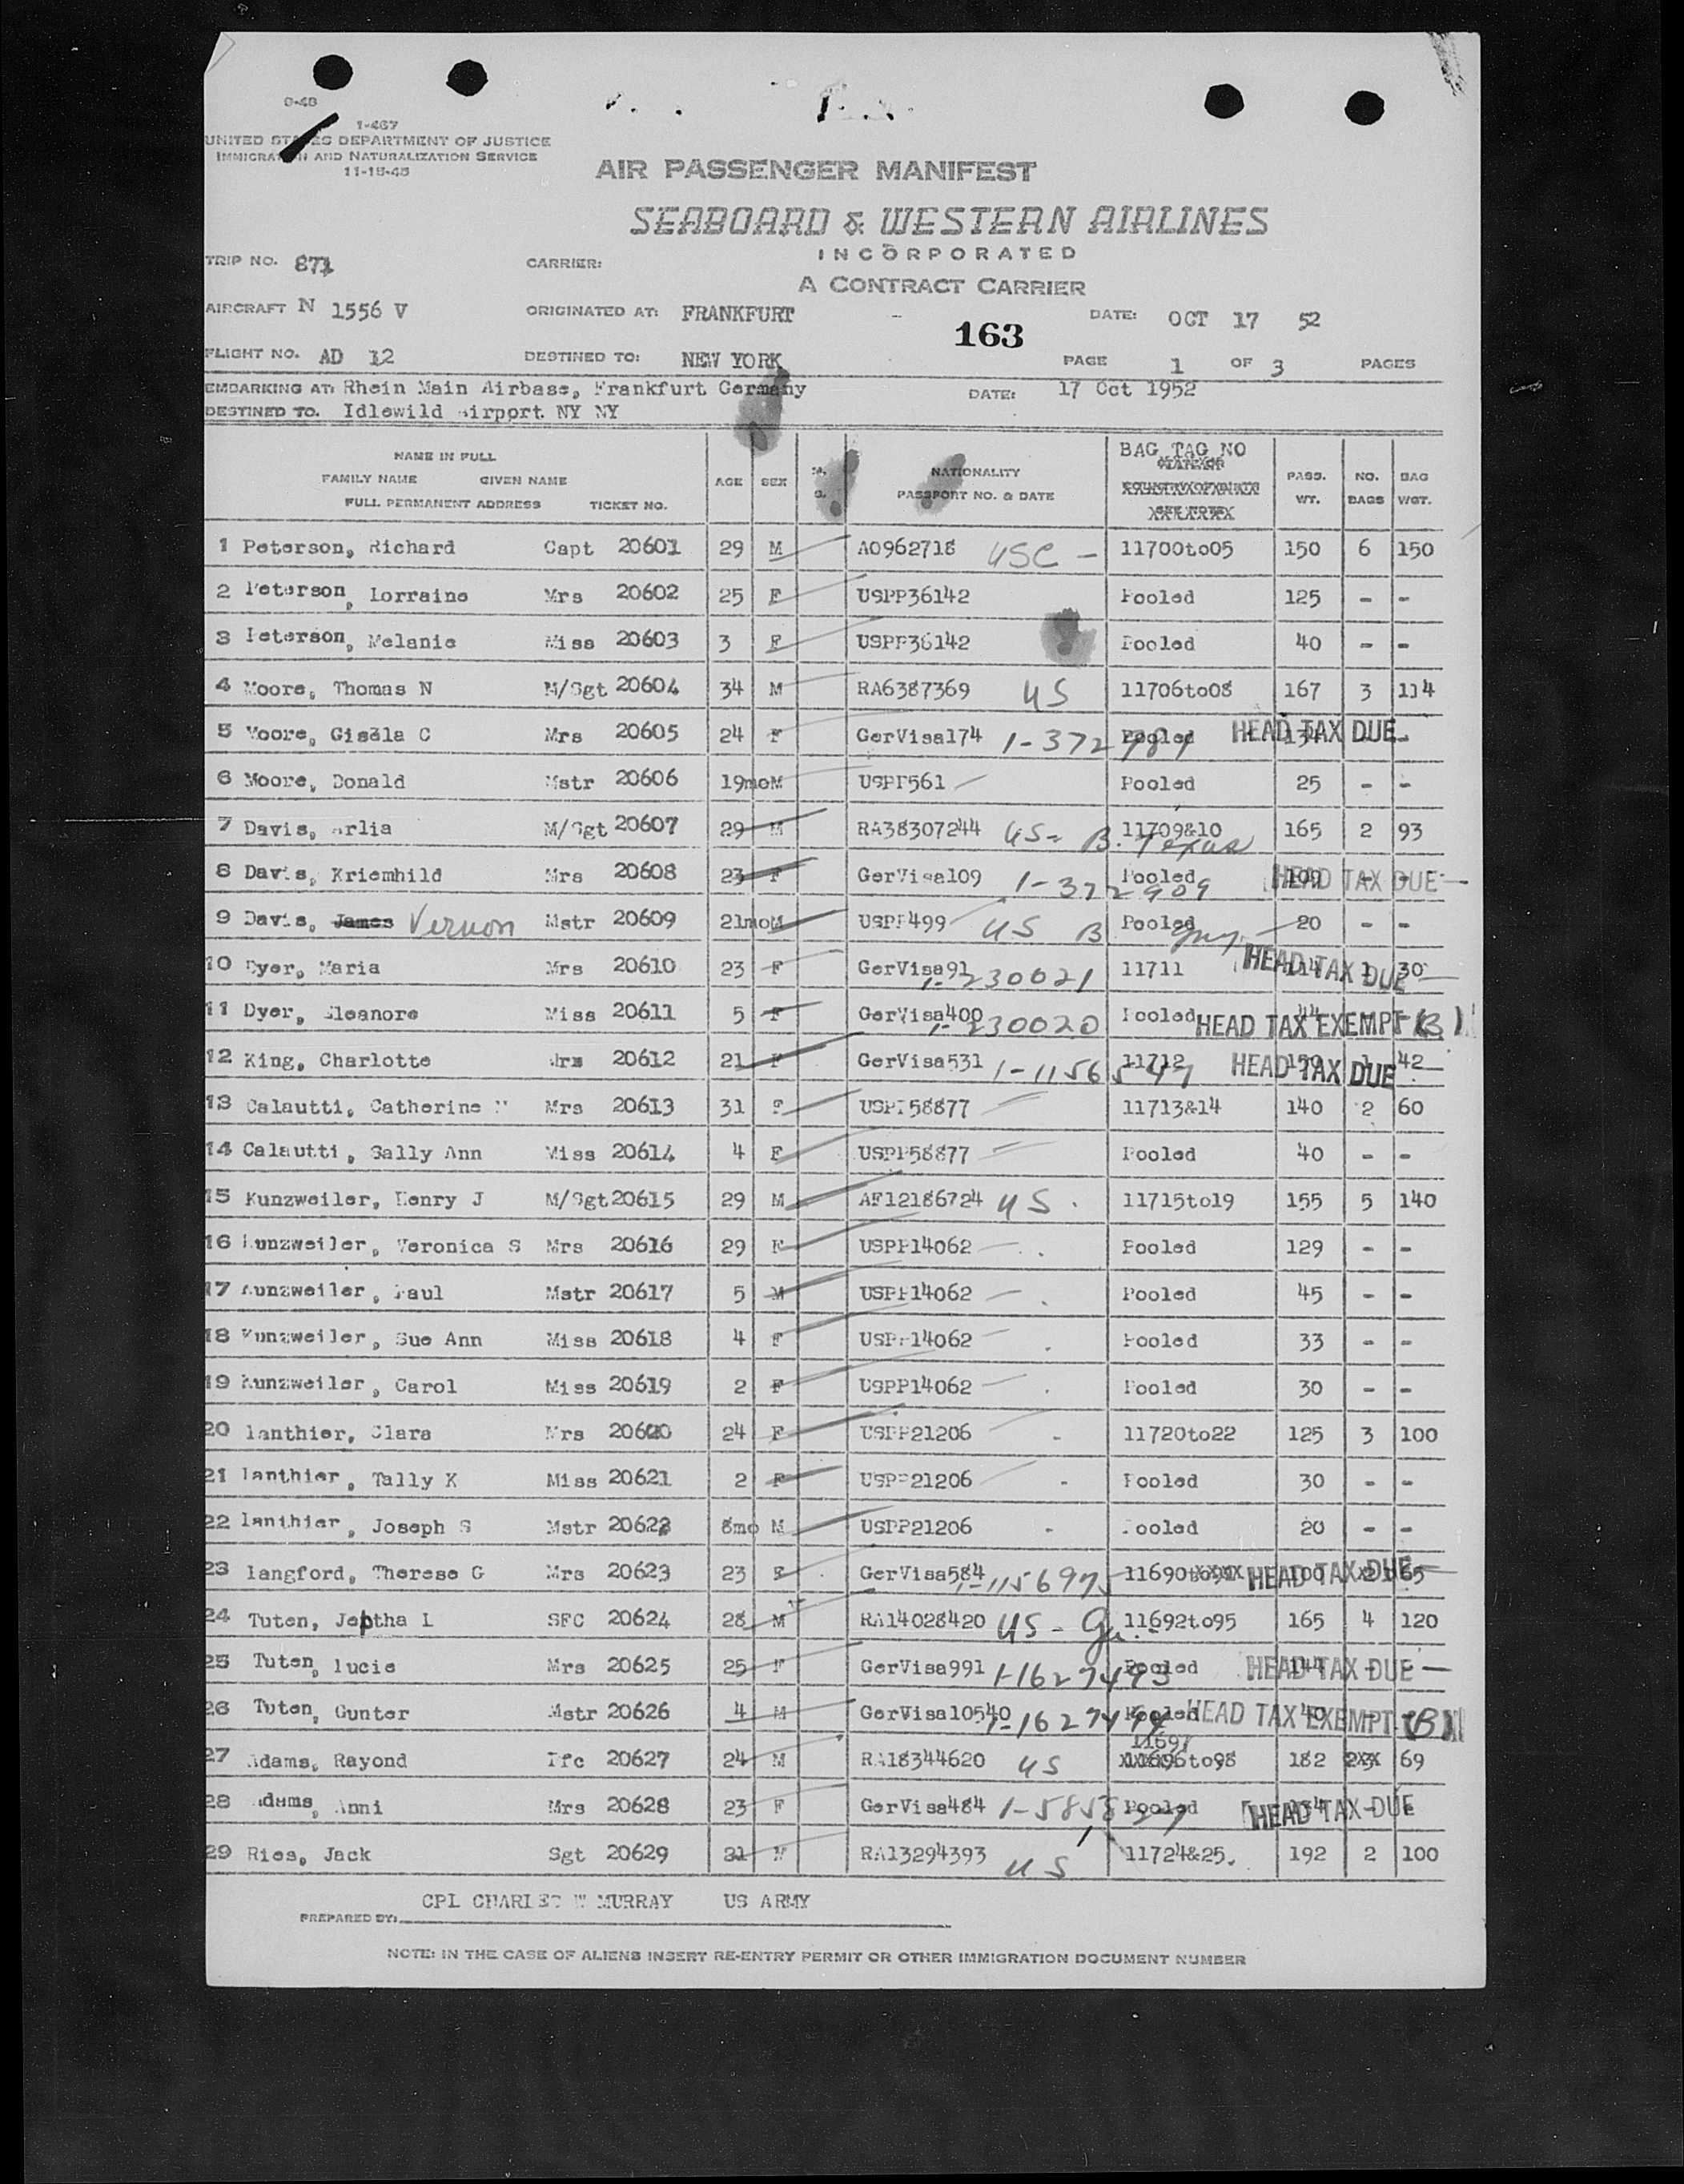 0-48
1-467
UNITED STATES DEPARTMENT OF JUSTICE
IMMIGRATION AND NATURALIZATION SERVICE
11-15-45
AIR PASSENGER MANIFEST
SEABOARD & WESTERN AIRLINES
INCORPORATED
A CONTRACT CARRIER
TRIP NO. 871 CARRIER:
AIRCRAFT N 1556 V ORIGINATED AT: FRANKFURT DATE: OCT 17 52
163
FLIGHT NO. AD 12 DESTINED TO: NEW YORK PAGE 1 OF 3 PAGES
EMBARKING AT: Rhein Main Airbase, Frankfurt Germany DATE: 17 Oct 1952
DESTINED TO. Idlewild Airport NY NY
NAME IN FULL
FAMILY NAME GIVEN NAME
FULL PERMANENT ADDRESS TICKET NO. AGE SEX M. S. NATIONALITY PASSPORT NO. & DATE BAG TAG NO PASS. WT. NO. BAGS BAG WGT.
1 Peterson, Richard Capt 20601 29 M A0962718 USC - 11700to05 150 6 150
2 Peterson, Lorraine Mrs 20602 25 F USPP36142 Pooled 125 - -
3 Peterson, Melanie Miss 20603 3 F USPP36142 Pooled 40 - -
4 Moore, Thomas N M/Sgt 20604 34 M RA6387369 US 11706to08 167 3 114
5 Moore, Gisela C Mrs 20605 24 F GerVisa174 Pooled HEAD TAX DUE -
6 Moore, Donald Mstr 20606 19mo M USPP561 Pooled 25 - -
7 Davis, Arlia M/Sgt 20607 29 M RA38307244 US- B. Texas 11709&10 165 2 93
8 Davis, Kriemhild Mrs 20608 23 F GerVisa109 1-372909 Pooled HEAD TAX DUE -
9 Davis, James Vernon Mstr 20609 21mo M USPP499 US B Pooled 20 - -
10 Dyer, Maria Mrs 20610 23 F GerVisa91 1-230021 11711 114 1 30 HEAD TAX DUE
11 Dyer, Eleanore Miss 20611 5 F GerVisa400 1-230020 Pooled 44 HEAD TAX EXEMPT (B)
12 King, Charlotte Mrs 20612 21 F GerVisa531 1-1156547 11712 1 42 HEAD TAX DUE
13 Calautti, Catherine M Mrs 20613 31 F USPP58877 11713&14 140 2 60
14 Calautti, Sally Ann Miss 20614 4 F USPP58877 Pooled 40 - -
15 Kunzweiler, Henry J M/Sgt 20615 29 M AF12186724 US. 11715to19 155 5 140
16 Kunzweiler, Veronica S Mrs 20616 29 F USPP14062 Pooled 129 - -
17 Kunzweiler, Paul Mstr 20617 5 M USPP14062 Pooled 45 - -
18 Kunzweiler, Sue Ann Miss 20618 4 F USPP14062 Pooled 33 - -
19 Kunzweiler, Carol Miss 20619 2 F USPP14062 Pooled 30 - -
20 Lanthier, Clara Mrs 20620 24 F USPP21206 - 11720to22 125 3 100
21 Lanthier, Tally K Miss 20621 2 F USPP21206 - Pooled 30 - -
22 Lanthier, Joseph S Mstr 20622 8mo M USPP21206 - Pooled 20 - -
23 Langford, Therese G Mrs 20623 23 F GerVisa584 1-1156975 11690 100 65 HEAD TAX DUE
24 Tuten, Jeptha L SFC 20624 28 M RA14028420 US - Ga. 11692to95 165 4 120
25 Tuten, Lucie Mrs 20625 25 F GerVisa991 1-1627493 Pooled 144 HEAD TAX DUE -
26 Tuten, Gunter Mstr 20626 4 M GerVisa10540 1-1627494 Pooled 40 HEAD TAX EXEMPT (B)
27 Adams, Rayond Pfc 20627 24 M RA18344620 US 11697 11696to98 182 69
28 Adams, Anni Mrs 20628 23 F GerVisa484 Pooled HEAD TAX DUE
29 Ries, Jack Sgt 20629 31 M RA13294393 US 11724&25. 192 2 100
PREPARED BY: CPL CHARLES W MURRAY US ARMY
NOTE: IN THE CASE OF ALIENS INSERT RE-ENTRY PERMIT OR OTHER IMMIGRATION DOCUMENT NUMBER